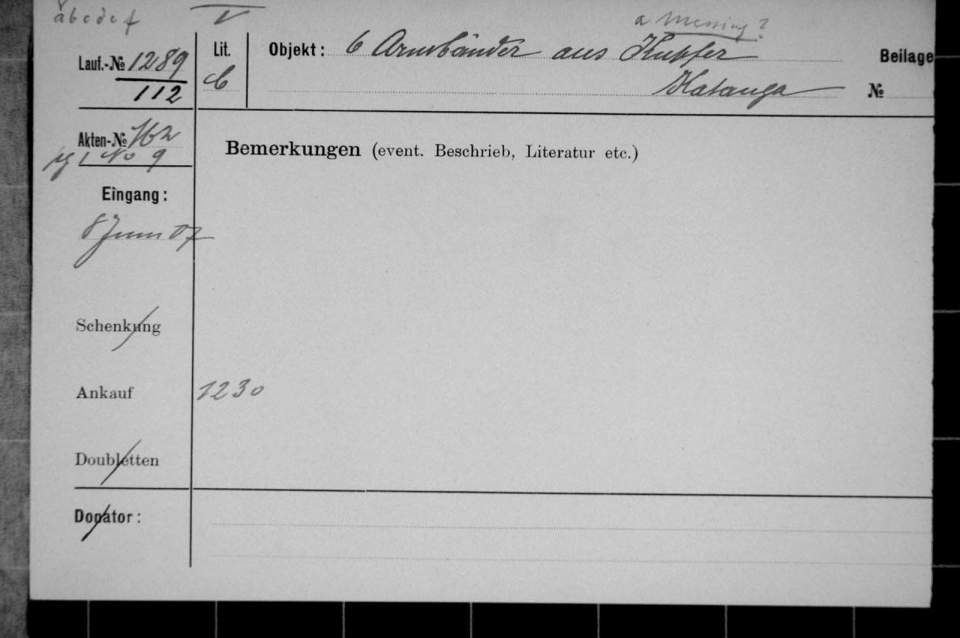 a b c d e f V a Messing?
Lauf.-№ 1289 Lit. Objekt: 6 Armbänder aus Kupfer Beilage
112 C Katanga №
Akten-№ 762
No 9
Bemerkungen (event. Beschrieb, Literatur etc.)
Eingang:
8 Juni 07
Schenkung
Ankauf 1230
Doubletten
Donator: